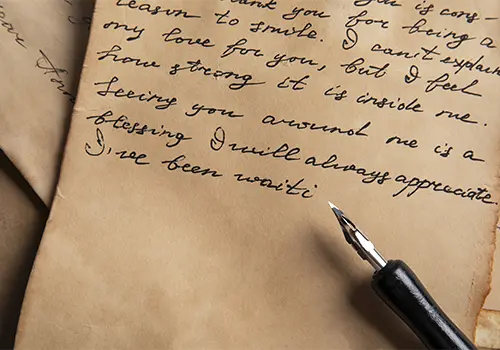 thank you for being a
reason to smile. I can't explain
my love for you, but I feel
how strong it is inside me.
Seeing you around me is a
blessing I will always appreciate.
I've been waiti